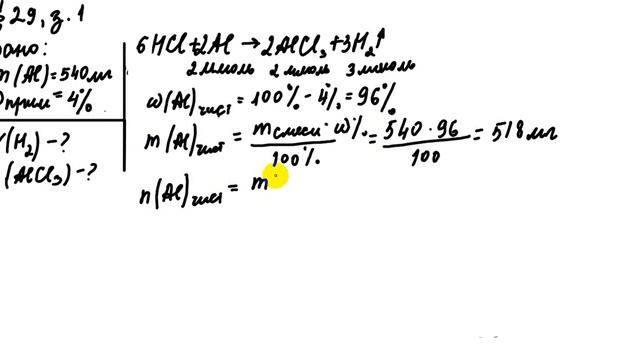 29, з. 1
дано:
m(Al)=540мг
прим = 4%
(H₂) -?
(AlCl₃) -?
6HCl+2Al → 2AlCl₃ + 3H₂↑
2 ммоль 2 ммоль 3 ммоль
ω(Al)чист = 100% - 4% = 96%
m(Al)чист = mсмеси · ω% / 100% = 540 · 96 / 100 = 518 мг
n(Al)чист = m